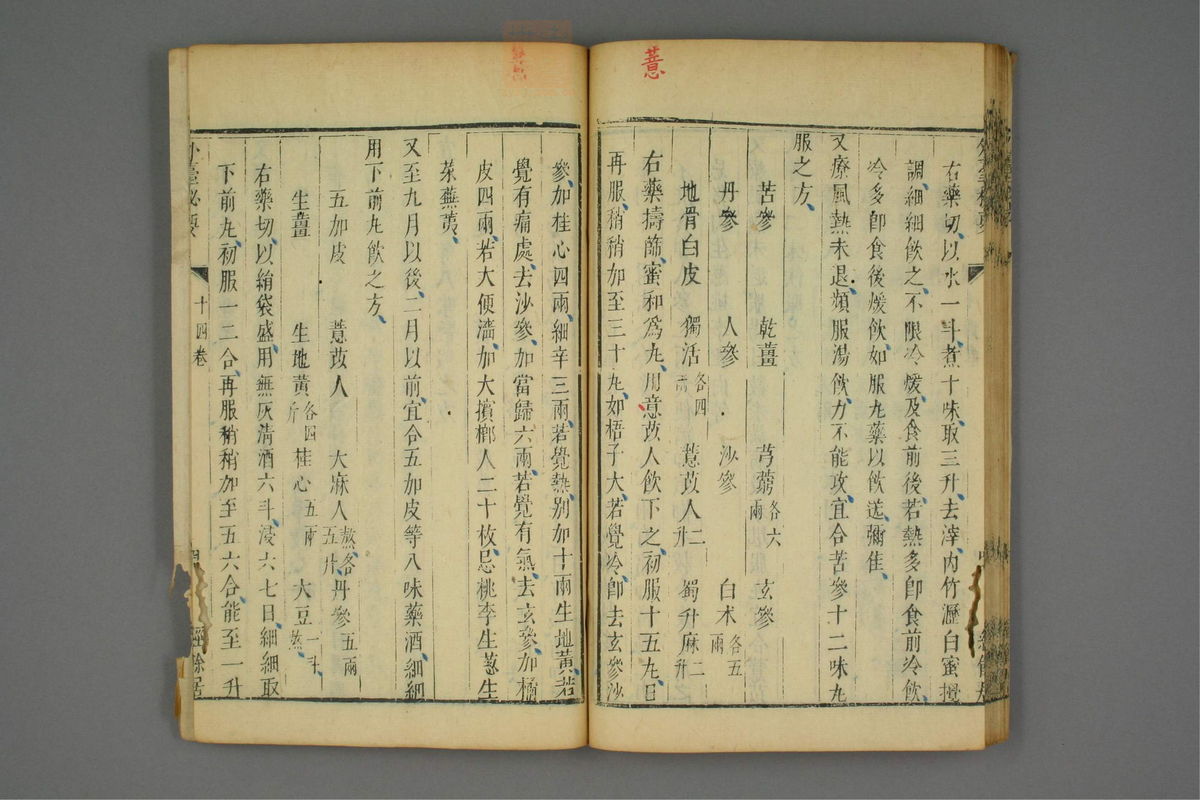 薏
右藥切以水一斗煮十味取三升去滓內竹瀝白蜜攪
調細細飲之不限冷煖及食前後若熱多卽食前冷飲
冷多卽食後煖飲如服丸藥以飲送彌佳
又療風熱未退頻服湯飲力不能攻宜合苦參十二味丸
服之方
苦參 乾薑 芎藭各六兩 玄參
丹參 人參 沙參 白朮各五兩
地骨白皮 獨活各四兩 薏苡人二升 蜀升麻二升
右藥擣篩蜜和爲丸用意苡人飲下之初服十五丸日
再服稍稍加至三十丸如梧子大若覺冷卽去玄參沙
參加桂心四兩細辛三兩若覺熱別加十兩生地黃若
覺有痛處去沙參加當歸六兩若覺有氣去玄參加橘
皮四兩若大便澁加大檳榔人二十枚忌桃李生蔥生
菜蕪荑
又至九月以後二月以前宜合五加皮等八味藥酒細細
用下前丸飲之方
五加皮 薏苡人 大麻人熬各五升 丹參五兩
生薑 生地黃各四斤 桂心五兩 大豆一斗熬
右藥切以絹袋盛用無灰清酒六斗浸六七日細細取
下前丸初服一二合再服稍稍加至五六合能至一升
外臺秘要 十四卷 經餘居